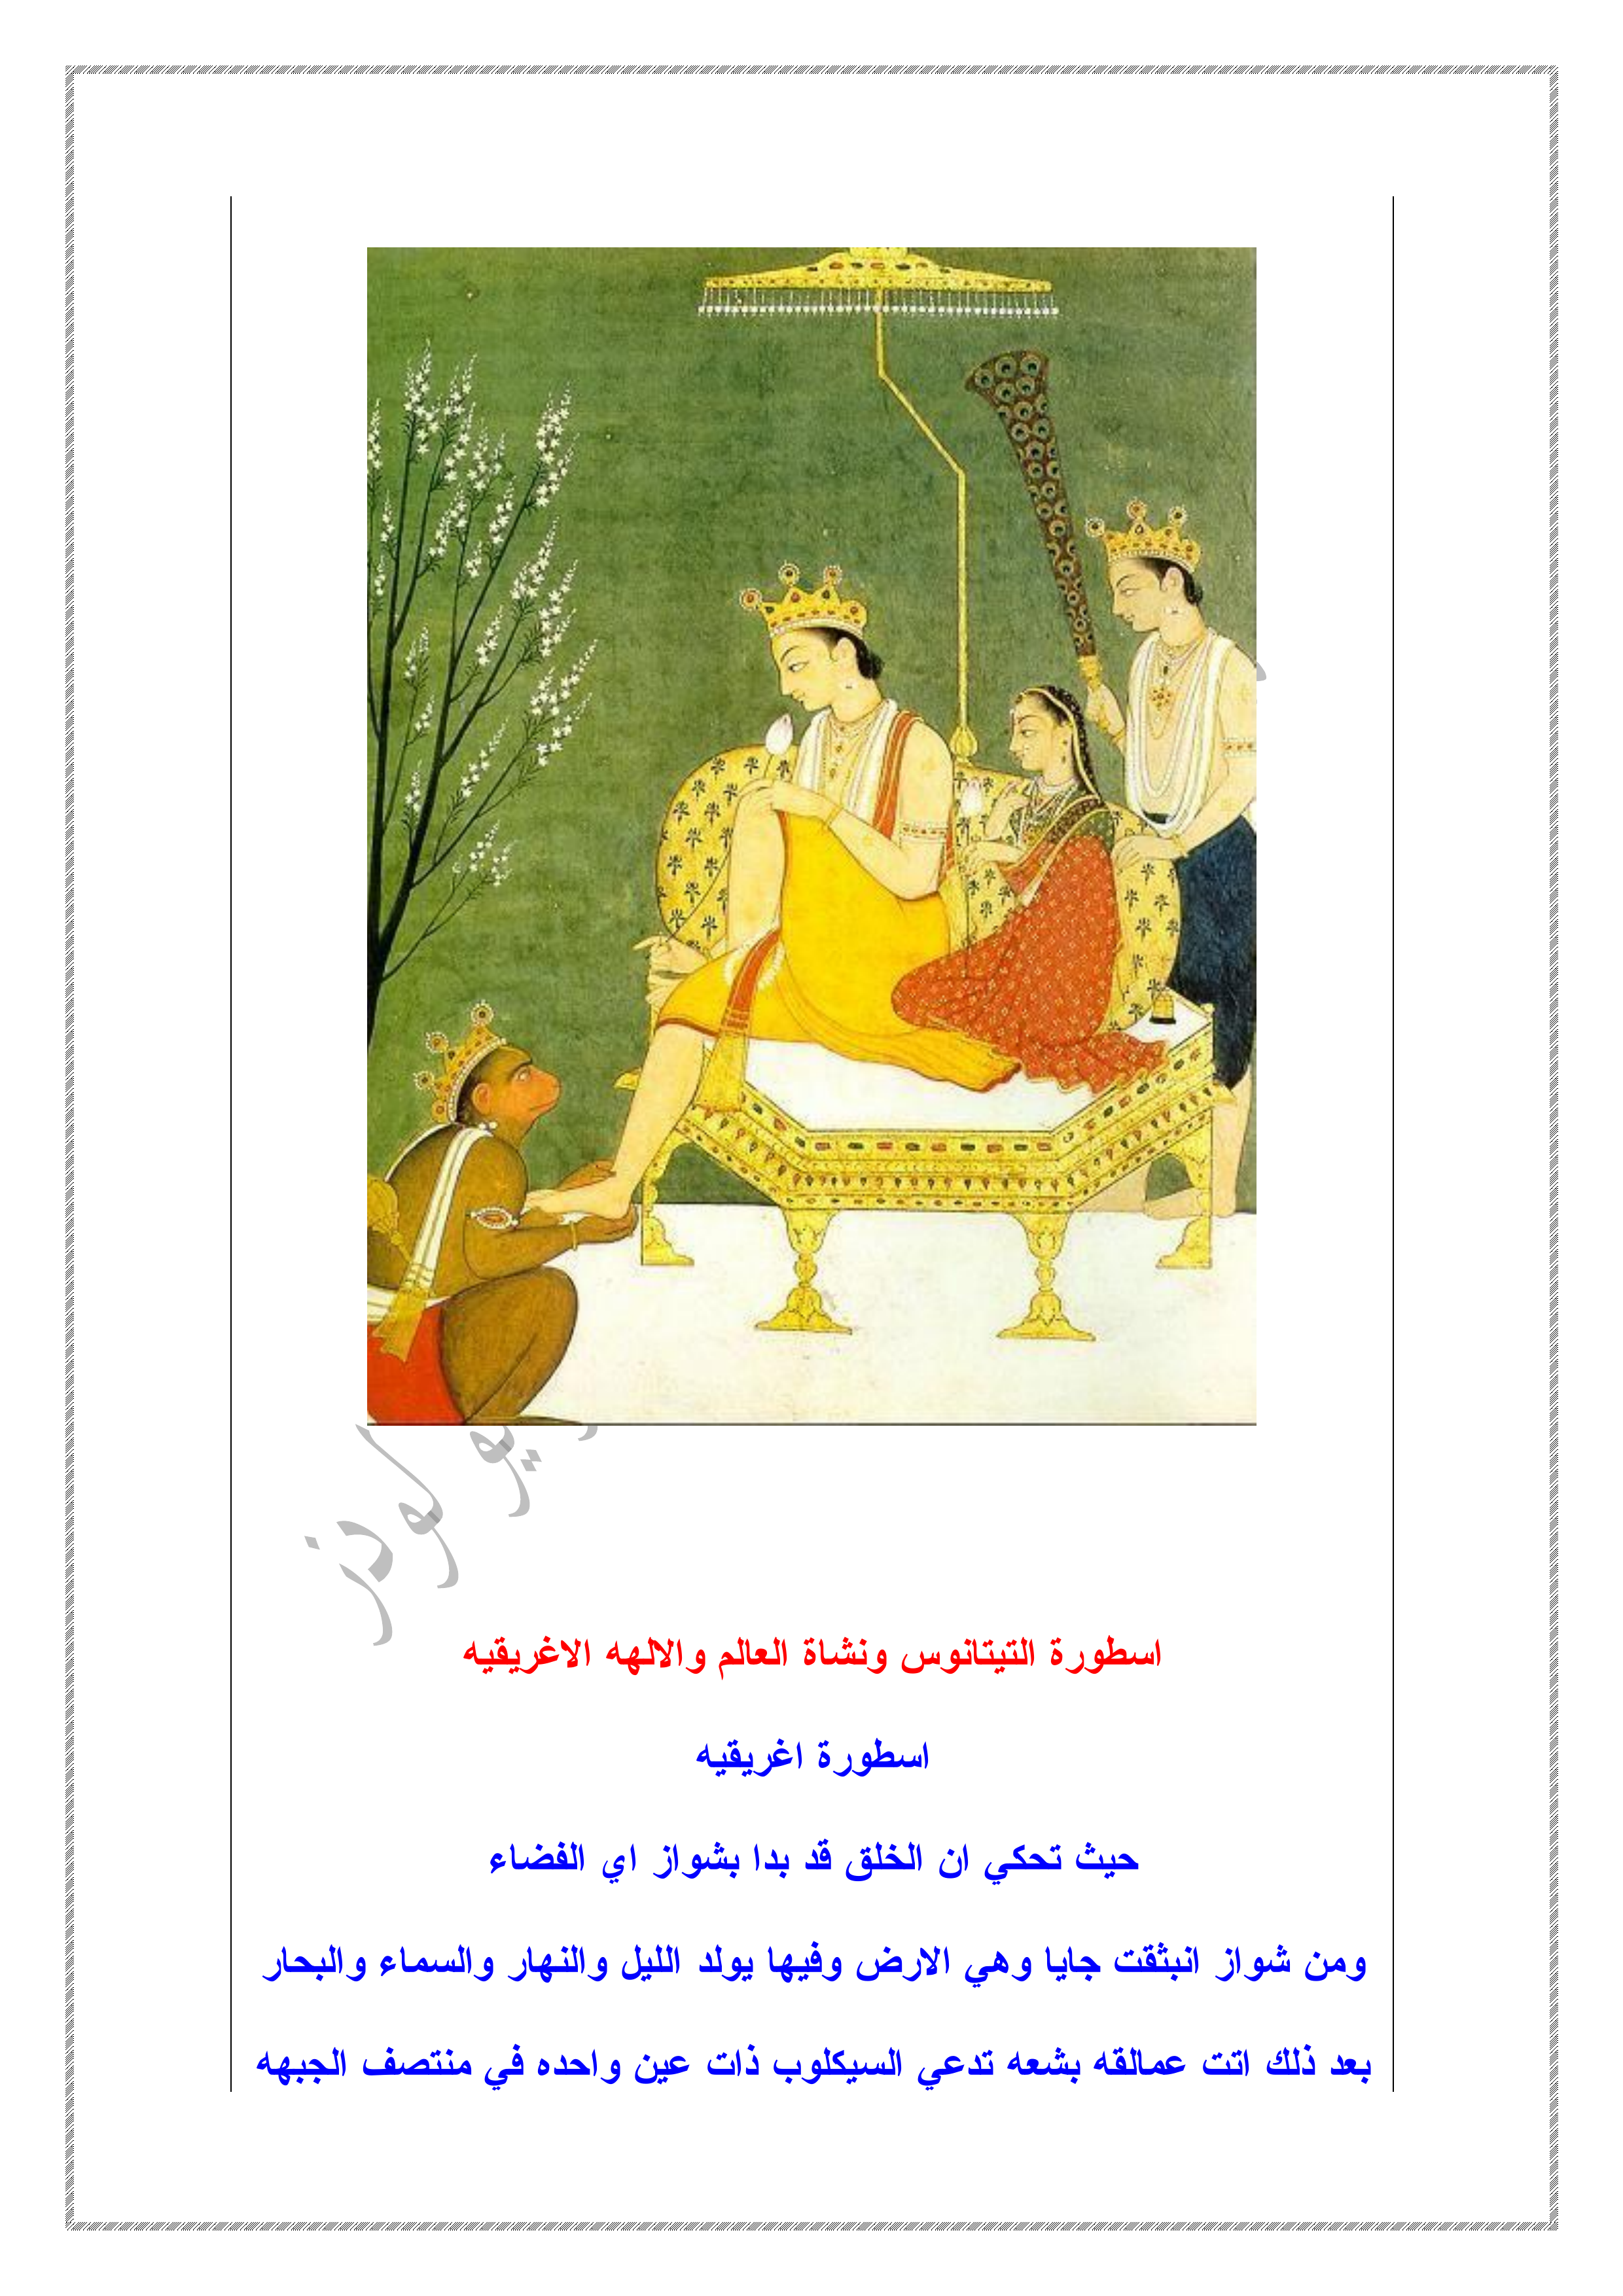 اسطورة التيتانوس ونشاة العالم والالهه الاغريقيه
اسطورة اغريقيه
حيث تحكي ان الخلق قد بدا بشواز اي الفضاء
ومن شواز انبثقت جايا وهي الارض وفيها يولد الليل والنهار والسماء والبحار
بعد ذلك اتت عمالقه بشعه تدعي السيكلوب ذات عين واحده في منتصف الجبهه